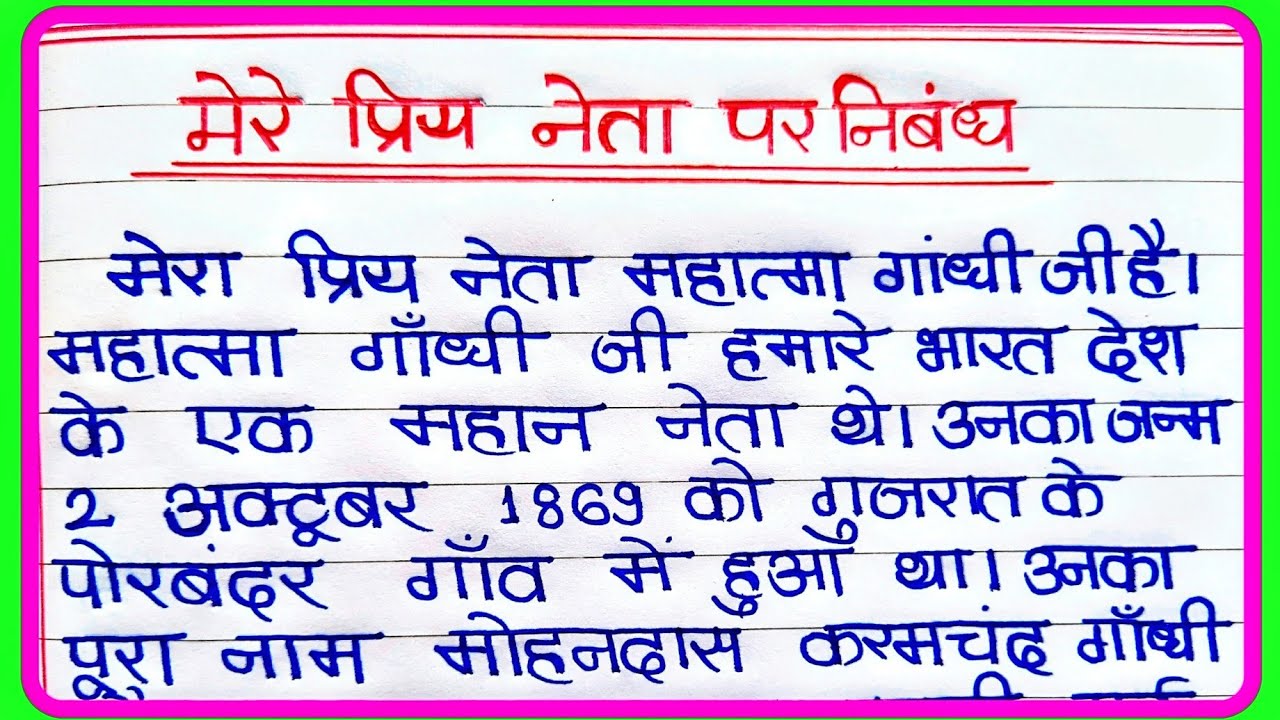 मेरे प्रिय नेता पर निबंध
मेरा प्रिय नेता महात्मा गांधी जी है।
महात्मा गाँधी जी हमारे भारत देश
के एक महान नेता थे। उनका जन्म
2 अक्टूबर 1869 को गुजरात के
पोरबंदर गाँव में हुआ था। उनका
पूरा नाम मोहनदास करमचंद गाँधी